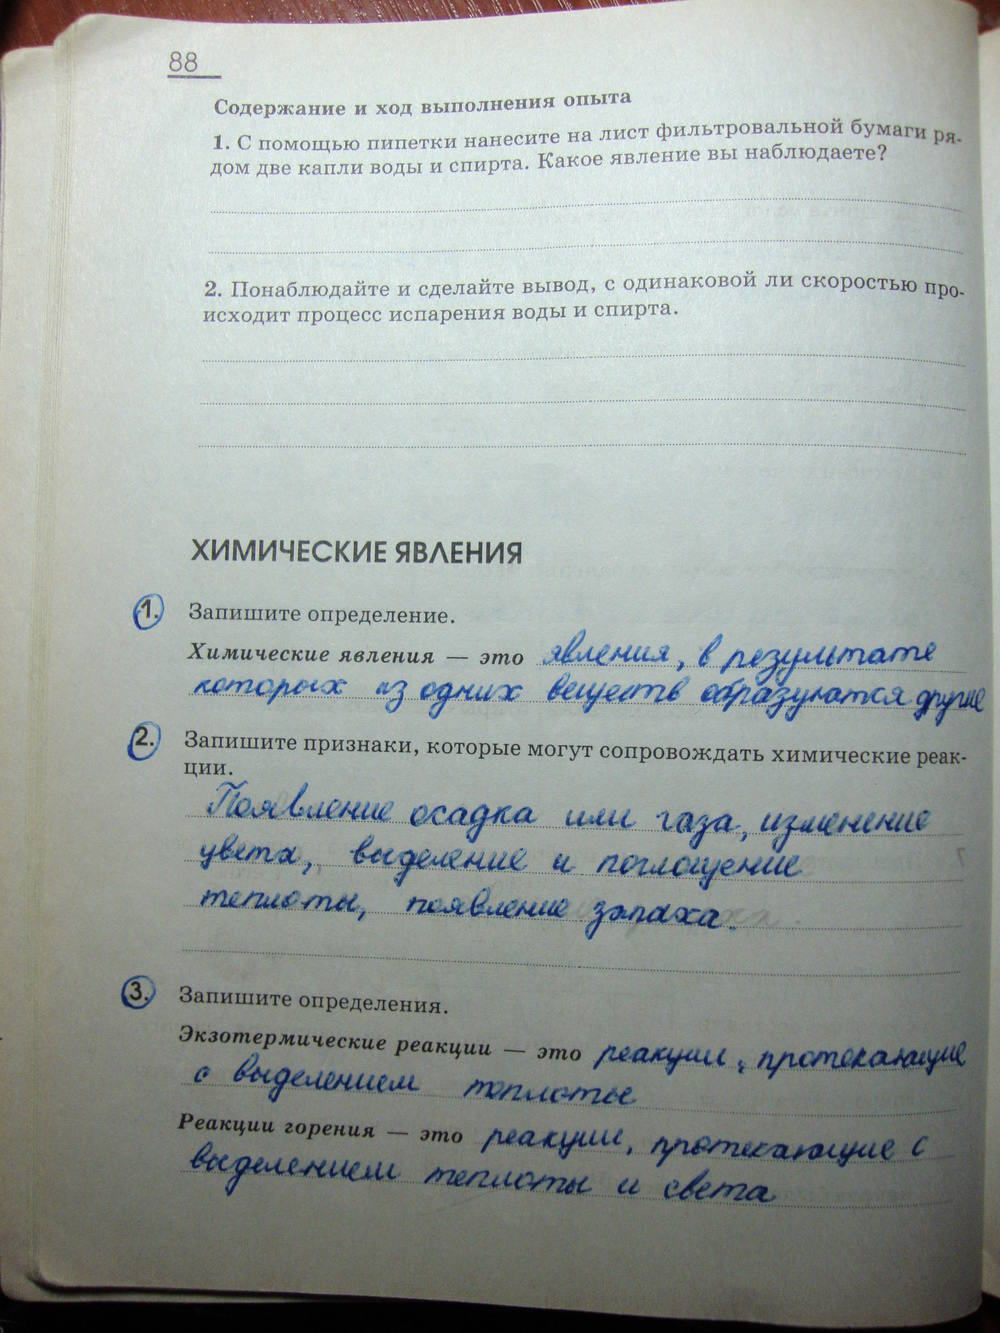 88
Содержание и ход выполнения опыта
1. С помощью пипетки нанесите на лист фильтровальной бумаги ря-
дом две капли воды и спирта. Какое явление вы наблюдаете?
2. Понаблюдайте и сделайте вывод, с одинаковой ли скоростью про-
исходит процесс испарения воды и спирта.
ХИМИЧЕСКИЕ ЯВЛЕНИЯ
1. Запишите определение.
Химические явления — это явления, в результате
которых из одних веществ образуются другие
2. Запишите признаки, которые могут сопровождать химические реак-
ции.
Появление осадка или газа, изменение
цвета, выделение и поглощение
теплоты, появление запаха.
3. Запишите определения.
Экзотермические реакции — это реакции, протекающие
с выделением теплоты
Реакции горения — это реакции, протекающие с
выделением теплоты и света